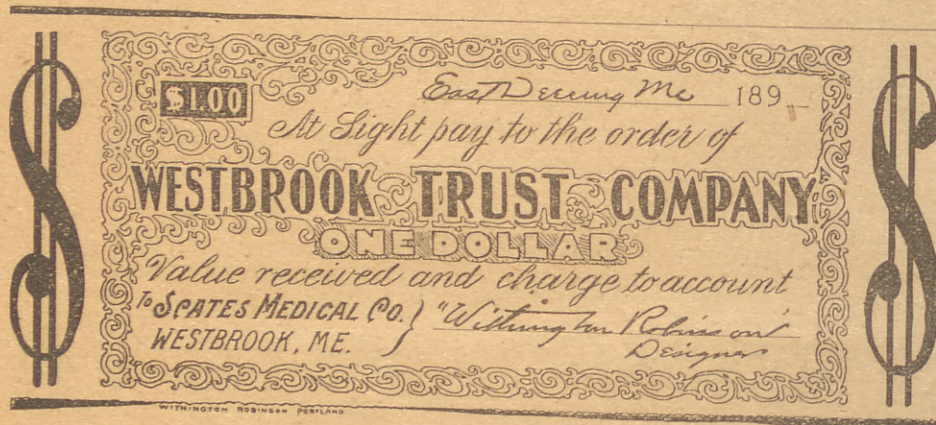 $1.00
East Deering Me 189
At Sight pay to the order of
WESTBROOK TRUST COMPANY
ONE DOLLAR
Value received and charge to account
To SCATES MEDICAL CO. } "Withington Robinson"
WESTBROOK, ME. Designer
WITHINGTON ROBINSON PORTLAND